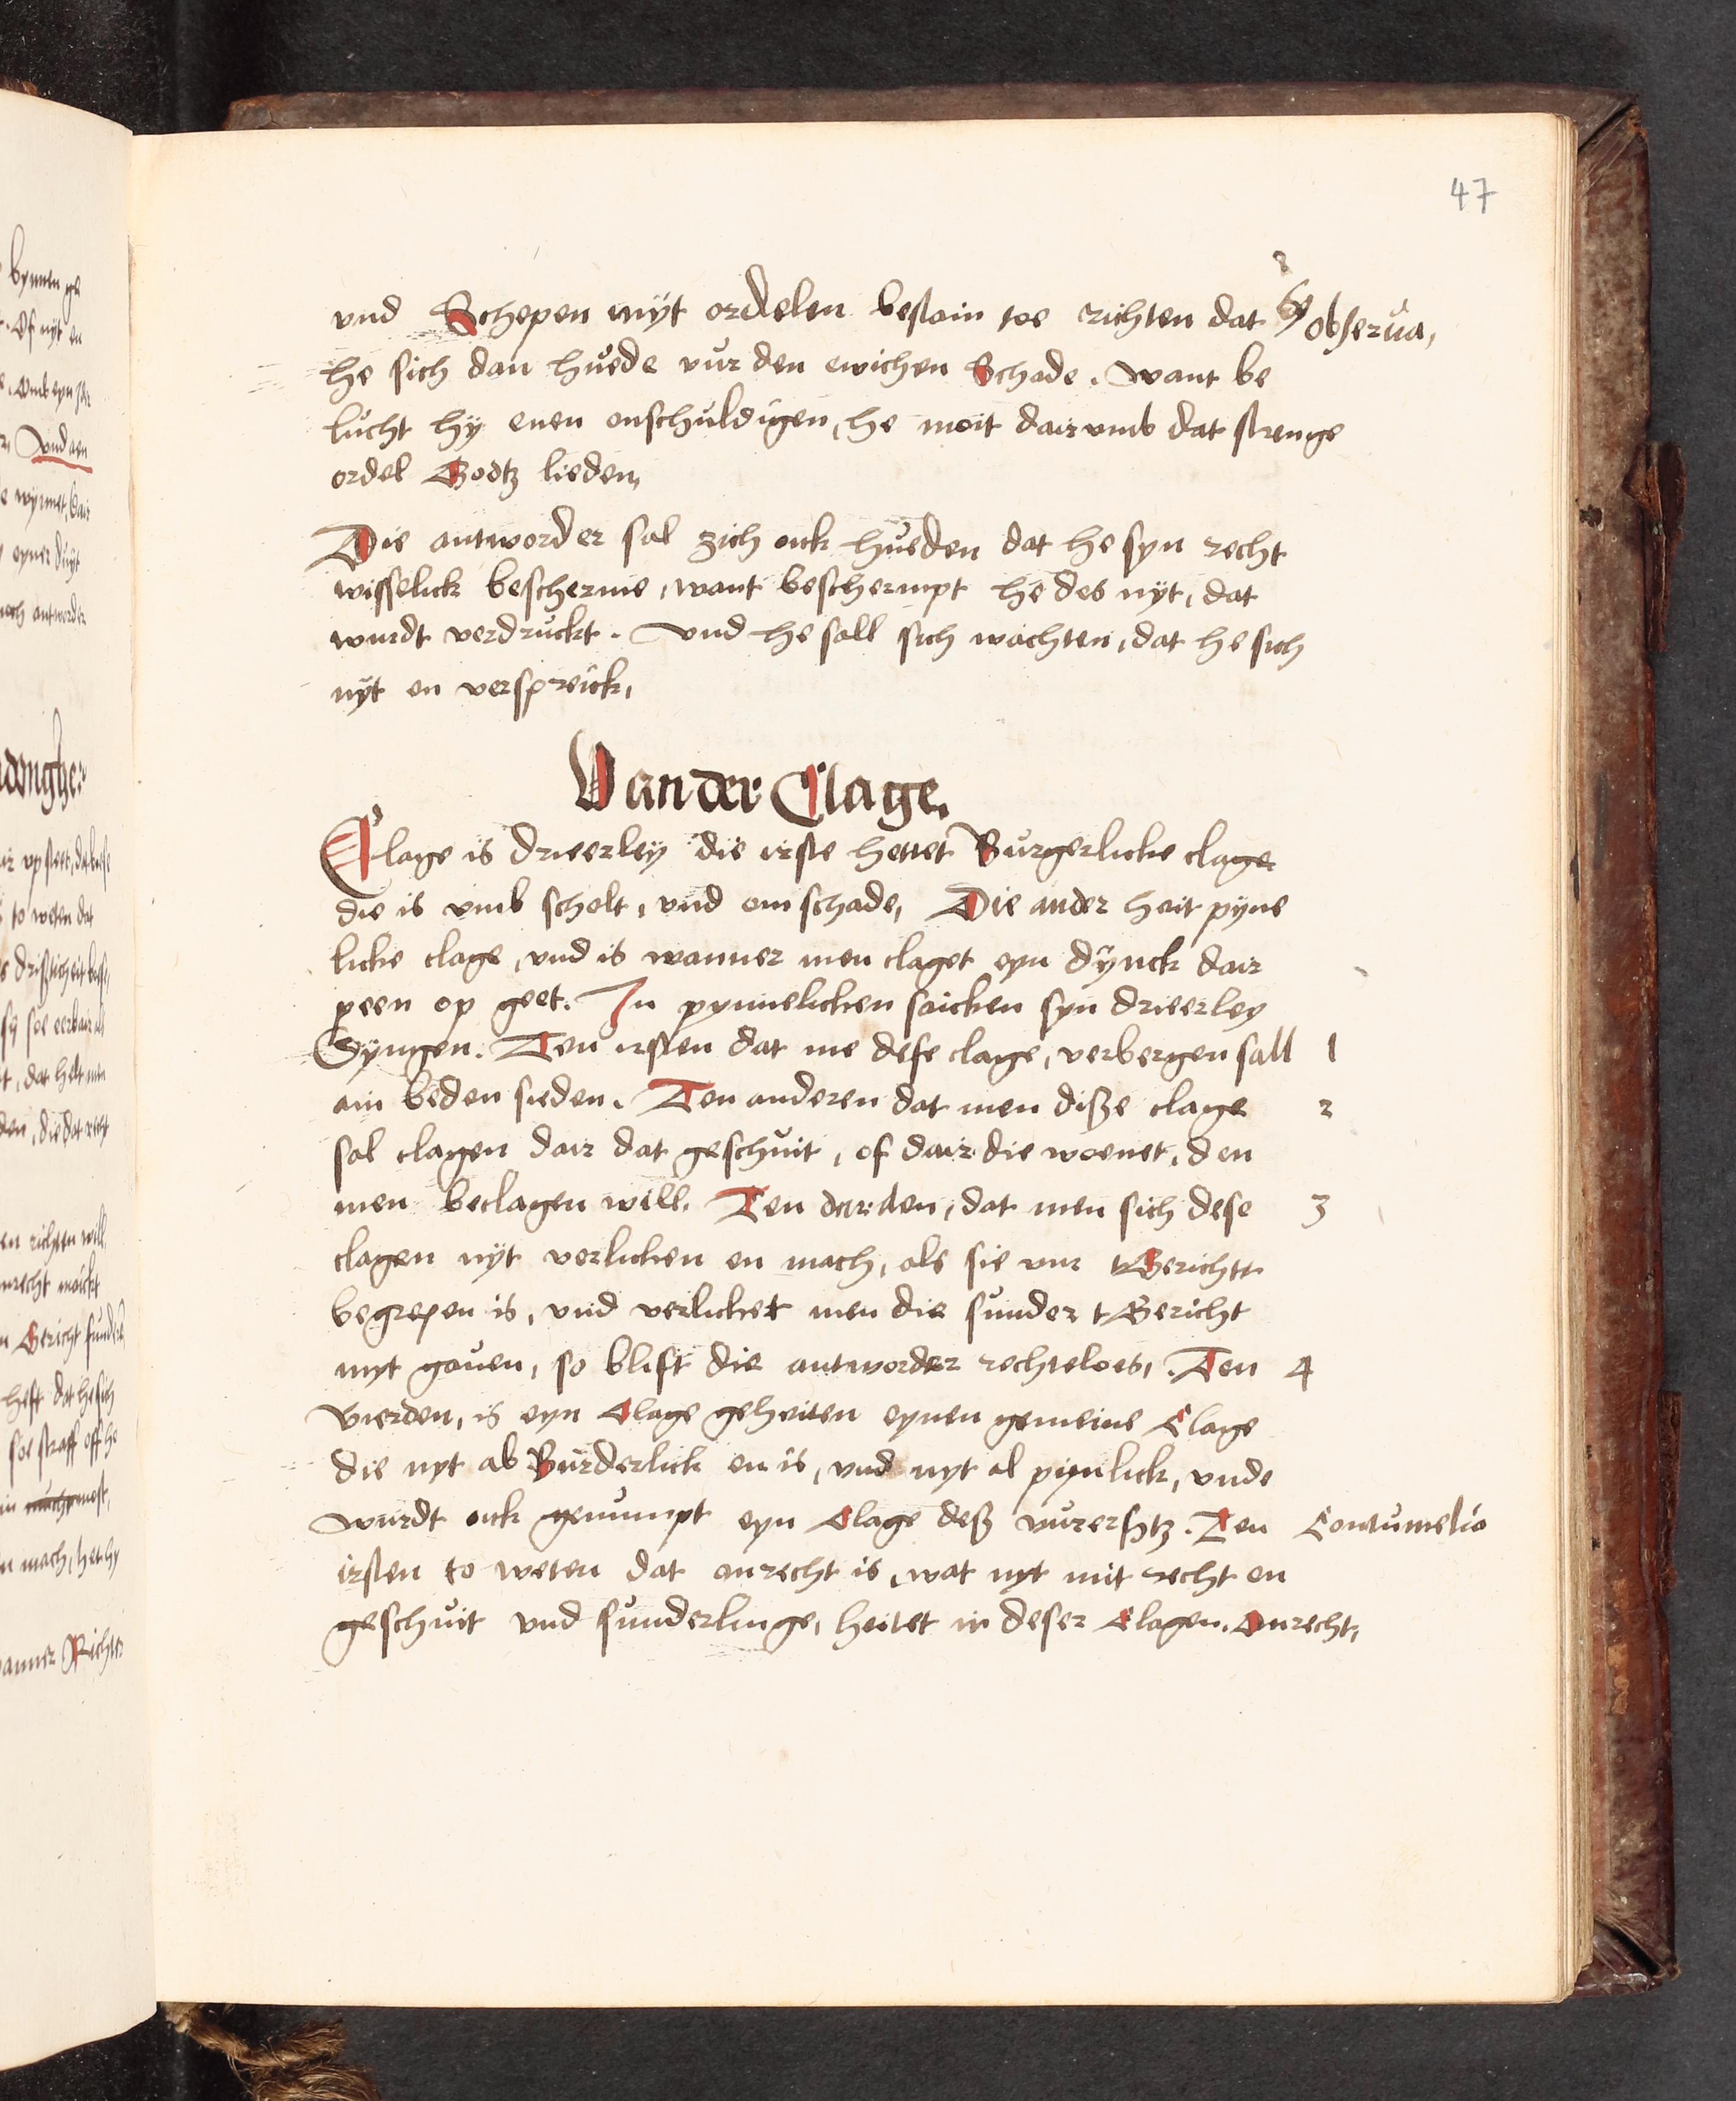 47
vnd Schepen myt ordelen bestain toe richten dat he obserua,
he sich dan huede vur den ewichen Schade. Want be
lucht hy enen onschuldigen, he moit dair vmb dat strenge
ordel Godtz lieden,
Die antworder sal zich ouk hueden dat he syn recht
wisselick bescherme, want beschermpt he des nyt, dat
wurdt verdruckt. Vnd he sall sich wachten, dat he sich
nyt en verspreick,
Van der Clage.
Clage is drieerley die irste heitet Burgerlicke clage
die is vmb scholt, vnd om schade, Die ander heit pyne
licke clage, vnd is wanner men claget eyn dynck dair
peen op geet. In pynnelicken saicken syn drieerley
Dyngen. Ten irsten dat me dese clage, verbergen sall 1
ain beden sieden. Ten anderen dat men disse clage 2
sal clagen dair dat geschuit, of dair die woenet, den
men beclagen will. Ten darden, dat men sich dese 3
clagen nyt verlicken en mach, als sie vur tGerichte
begrepen is, vnd verlicket men die sunder tGericht
myt gauen, so blift die antworder rechteloes, Ten 4
vierden, is eyn Clage geheiten eynen gemeine Clage
die nyt al Burderlick en is, vnd nyt al pynlick, vnde
wurdt ouk genumpt eyn Clage deß vurersstz. Ten Contumelia
irsten to weten dat onrecht is, wat nyt mit recht en
geschuit vnd sunderlinge, heitet in deser Clagen. Onrecht,